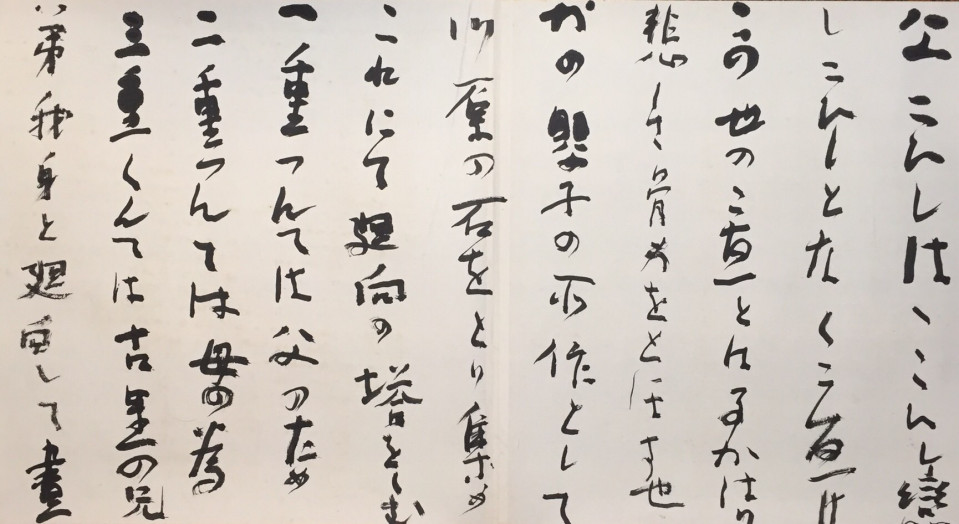 父こひしはゝこひし戀
しこひしとなくこゑは
この世のこゑとはことかはり
悲しさ骨身をとほす也
かの嬰子の所作として
川原の石をとり集め
これにて廻向の塔をくむ
一重つんては父のため
二重つんては母の為
三重くんては古里の兄
弟我身と廻向して晝